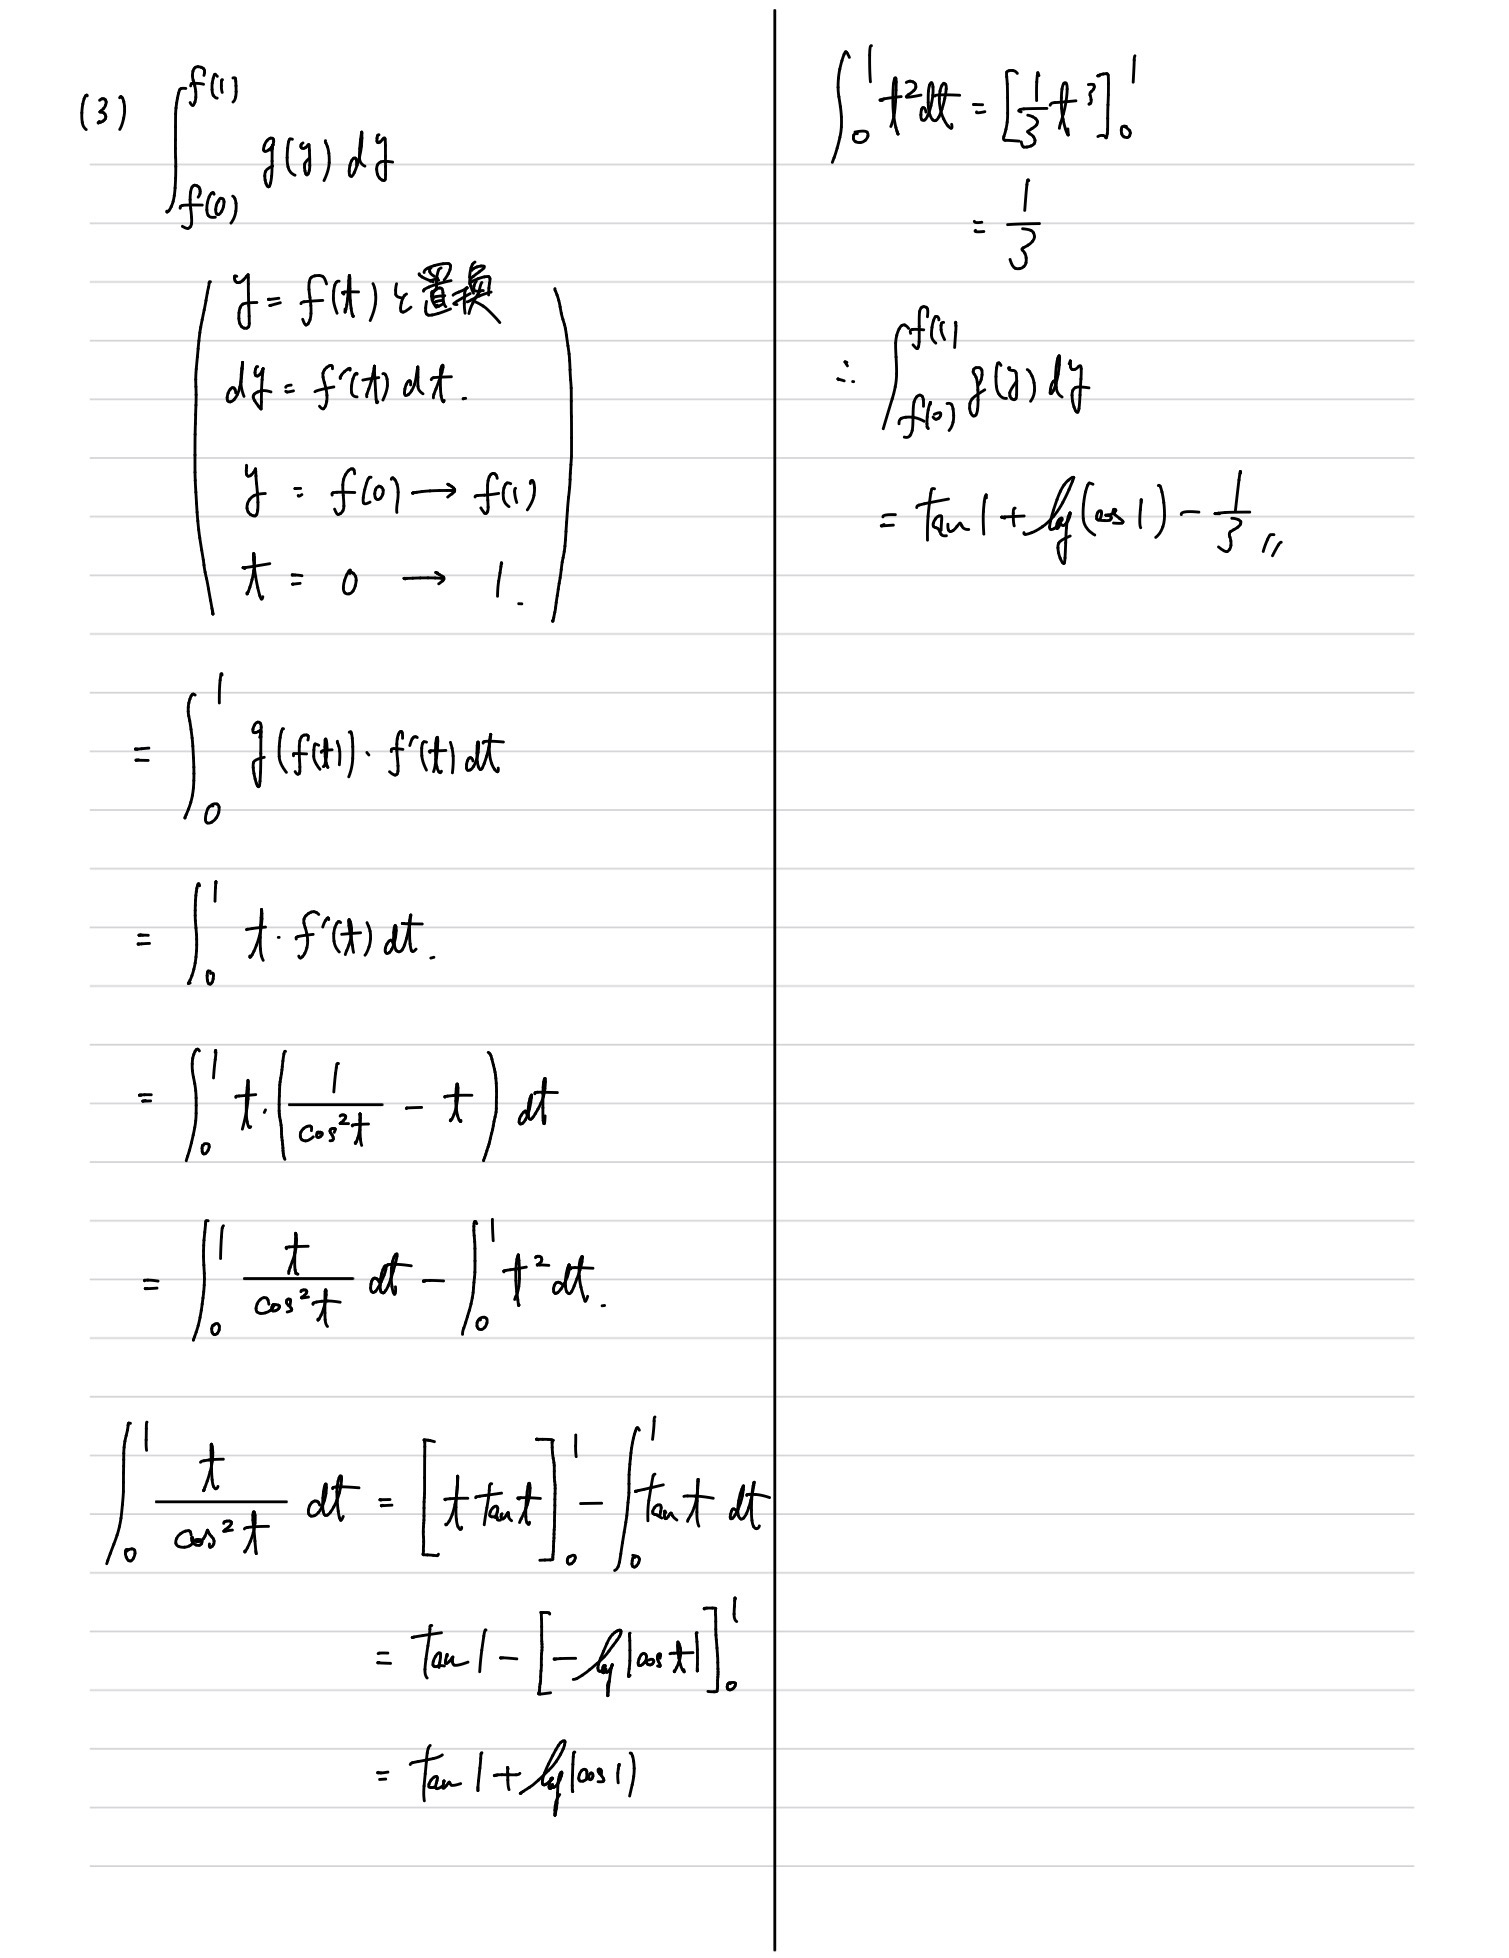 (3) ∫_{f(0)}^{f(1)} g(y) dy
y = f(t) と置換
dy = f'(t) dt.
y = f(0) → f(1)
t = 0 → 1.
= ∫_0^1 g(f(t))・f'(t) dt
= ∫_0^1 t・f'(t) dt.
= ∫_0^1 t・(1/cos²t - t) dt
= ∫_0^1 t/cos²t dt - ∫_0^1 t² dt.
∫_0^1 t/cos²t dt = [t tan t]_0^1 - ∫_0^1 tan t dt
= tan 1 - [-log|cos t|]_0^1
= tan 1 + log(cos 1)
∫_0^1 t² dt = [1/3 t³]_0^1
= 1/3
∴ ∫_{f(0)}^{f(1)} g(y) dy
= tan 1 + log(cos 1) - 1/3 〃